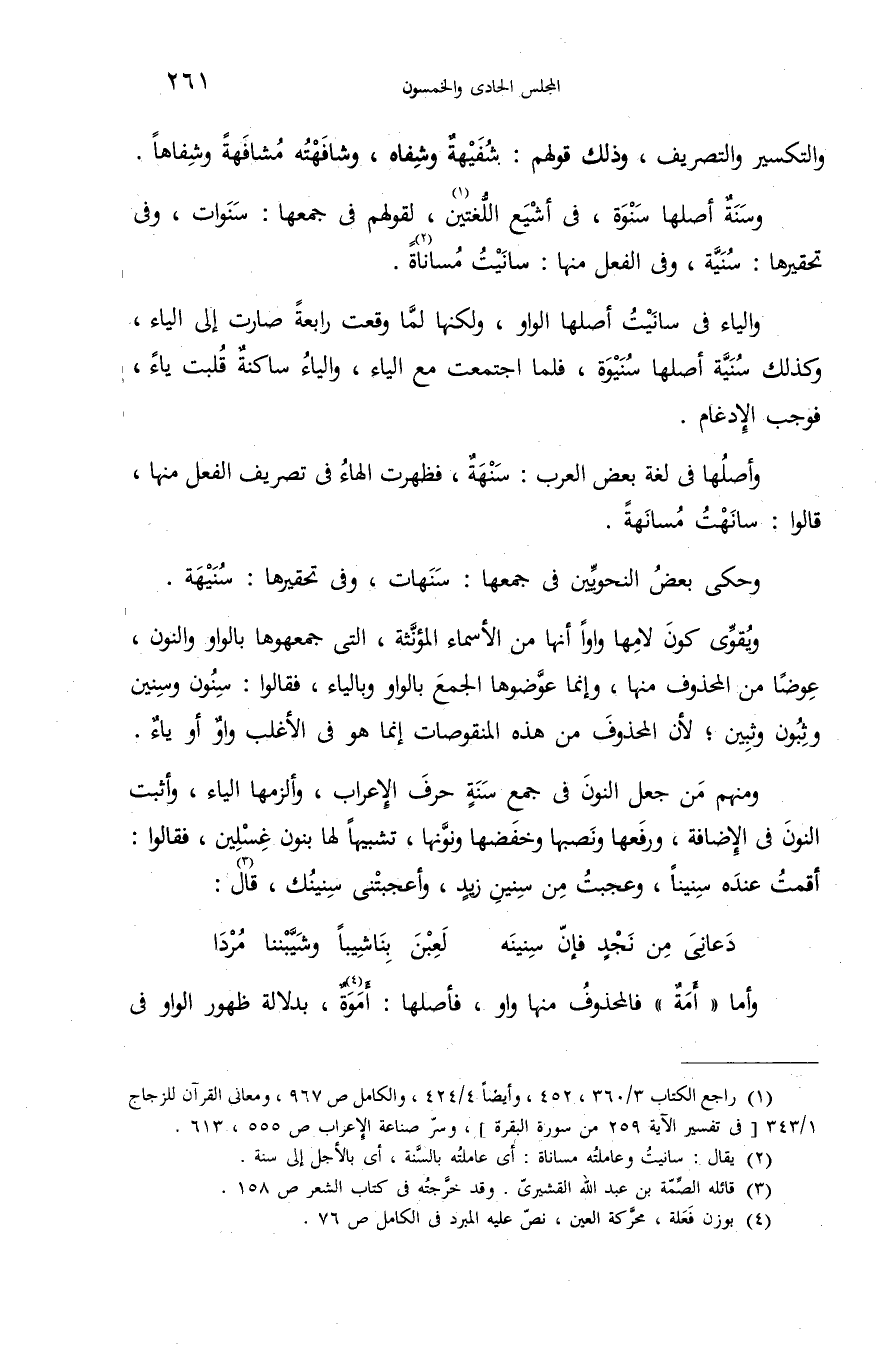 المجلس الحادى والخمسون ٢٦١
والتكسير والتصريف ، وذلك قولهم : شُفَيْهةٌ وشِفاه ، وشافَهْتُه مُشافَهةً وشِفاهاً .
وسَنَةٌ أصلها سَنْوَة ، فى أشْيَع اللُّغتين(١) ، لقولهم فى جمعها : سَنَوات ، وفى
تحقيرها : سُنَيَّة ، وفى الفعل منها : سانَيْتُ مُساناةً(٢) .
والياء فى سانَيْتُ أصلها الواو ، ولكنها لمَّا وقعت رابعةً صارت إلى الياء ،
وكذلك سُنَيَّة أصلها سُنَيْوَة ، فلما اجتمعت مع الياء ، والياءُ ساكنةٌ قُلبت ياءً ،
فوجب الإِدغام .
وأصلُها فى لغة بعض العرب : سَنْهَةٌ ، فظهرت الهاءُ فى تصريف الفعل منها ،
قالوا : سانَهْتُ مُسانَهةً .
وحكى بعضُ النحويِّين فى جمعها : سَنَهات ، وفى تحقيرها : سُنَيْهَة .
ويُقوِّى كونَ لامِها واواً أنها من الأسماء المؤنَّثة ، التى جمعهوها بالواو والنون ،
عِوضًا من المحذوف منها ، وإنما عوَّضوها الجمعَ بالواو وبالياء ، فقالوا : سِنُون وسِنين
وثِبُون وثبِين ؛ لأن المحذوفَ من هذه المنقوصات إنما هو فى الأغلب واوٌ أو ياءٌ .
ومنهم مَن جعل النونَ فى جمع سَنَةٍ حرفَ الإِعراب ، وألزمها الياء ، وأثبت
النونَ فى الإِضافة ، ورفَعها ونَصبها وخفَضها ونوَّنها ، تشبيهاً لها بنون غِسْلِين ، فقالوا :
أقمتُ عندَه سِنيناً ، وعجبتُ مِن سِنينِ زيدٍ ، وأعجبتْنى سِنينُك ، قال(٣) :
دَعانِىَ مِن نَجْدٍ فإنّ سِنينَه لَعِبْنَ بِنَاشِيباً وشَيَّبْننا مُرْدَا
وأما « أَمَةٌ » فالمحذوفُ منها واو ، فأصلها : أَمَوَةٌ(٤) ، بدلالة ظهور الواو فى
(١) راجع الكتاب ٣٦٠/٣ ، ٤٥٢ ، وأيضاً ٤٢٤/٤ ، والكامل ص ٩٦٧ ، ومعانى القرآن للزجاج
٣٤٣/١ [ فى تفسير الآية ٢٥٩ من سورة البقرة ] ، وسرّ صناعة الإِعراب ص ٥٥٥ ، ٦١٣ .
(٢) يقال : سانيتُ وعاملتُه مساناة : أى عاملتُه بالسَّنة ، أى بالأجل إلى سنة .
(٣) قائله الصِّمّة بن عبد الله القشيرىّ . وقد خرَّجتُه فى كتاب الشعر ص ١٥٨ .
(٤) بوزن فَعَلة ، محرَّكة العين ، نصّ عليه المبرد فى الكامل ص ٧٦ .